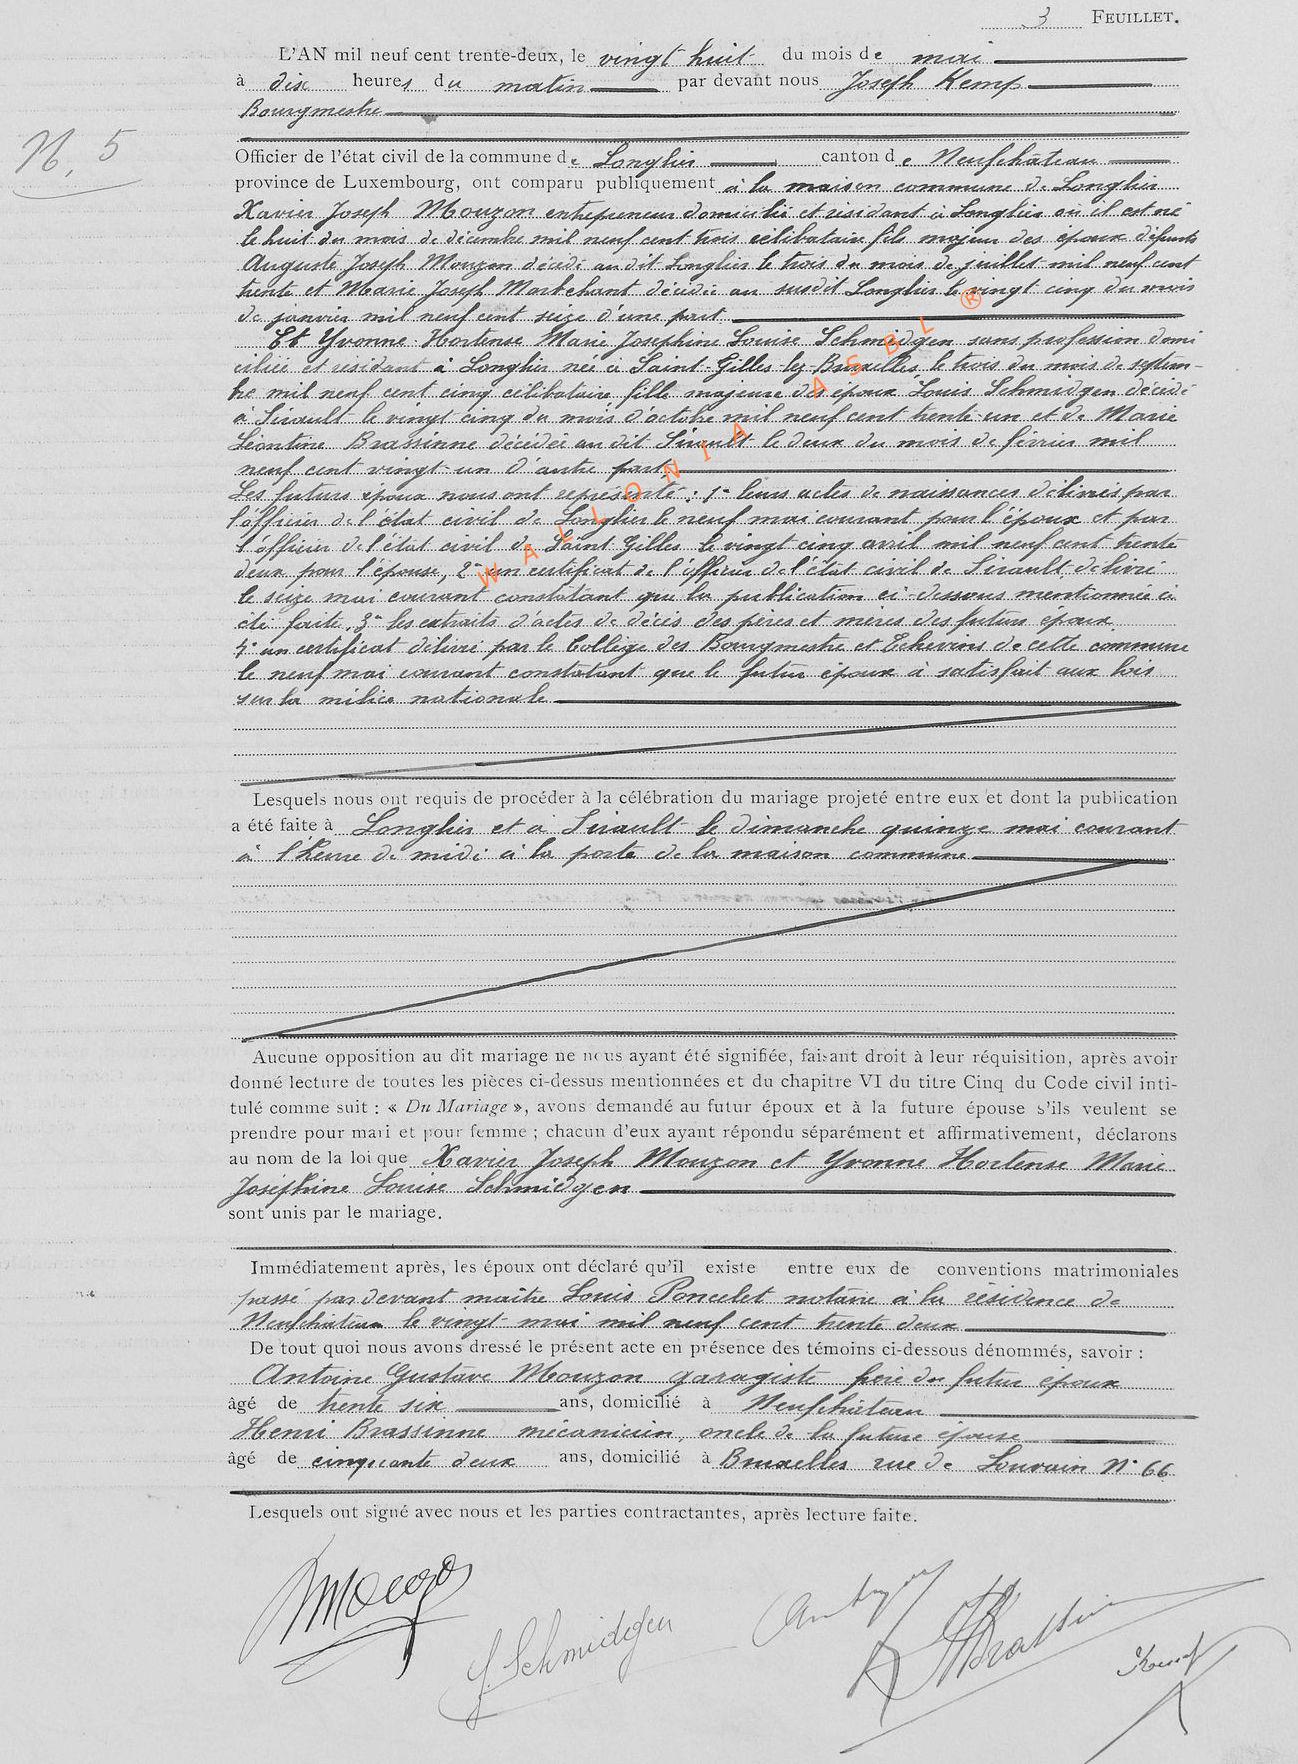 3 FEUILLET.
L'AN mil neuf cent trente-deux, le vingt huit du mois de mai
à dix heures du matin par devant nous Joseph Kemp
Bourgmestre
N. 5
Officier de l'état civil de la commune de Longlier canton de Neufchâteau
province de Luxembourg, ont comparu publiquement à la maison commune de Longlier
Xavier Joseph Mouzon entrepreneur domicilié et résidant à Longlier où il est né
le huit du mois de décembre mil neuf cent trois célibataire fils majeur des époux défunts
Auguste Joseph Mouzon décédé au dit Longlier le trois du mois de juillet mil neuf cent
trente et Marie Joseph décédée au susdit Longlier le vingt cinq du mois
de janvier mil neuf cent seize d'une part
Et Yvonne Hortense Marie Josephine Louise Schmidgen sans profession domi
ciliée et résidant à Longlier née à Saint-Gilles-lez-Bruxelles le trois du mois de septem-
bre mil neuf cent cinq célibataire fille majeure des époux Louis Schmidgen décédé
à Sirault le vingt cinq du mois d'octobre mil neuf cent trente-un et de Marie
Léontine Brassinne décédée au dit Sirault le deux du mois de février mil
neuf cent vingt-un d'autre part
Les futurs époux nous ont représenté : 1° leurs actes de naissances délivrés par
l'officier de l'état civil de Longlier le neuf mai courant pour l'époux et par
l'officier de l'état civil de Saint Gilles le vingt cinq avril mil neuf cent trente
deux pour l'épouse, 2° un certificat de l'officier de l'état civil de Sirault délivré
le seize mai courant constatant que la publication ci-dessous mentionnée a
été faite, 3° les extraits d'actes de décès des pères et mères des futurs époux
4° un certificat délivré par le Collège des Bourgmestre et Echevins de cette commune
le neuf mai courant constatant que le futur époux à satisfait aux lois
sur la milice nationale
WALLONIA ASBL ®
Lesquels nous ont requis de procéder à la célébration du mariage projeté entre eux et dont la publication
a été faite à Longlier et à Sirault le dimanche quinze mai courant
à l'heure de midi à la porte de la maison commune
Aucune opposition au dit mariage ne nous ayant été signifiée, faisant droit à leur réquisition, après avoir
donné lecture de toutes les pièces ci-dessus mentionnées et du chapitre VI du titre Cinq du Code civil inti-
tulé comme suit : « Du Mariage », avons demandé au futur époux et à la future épouse s'ils veulent se
prendre pour mari et pour femme ; chacun d'eux ayant répondu séparément et affirmativement, déclarons
au nom de la loi que Xavier Joseph Mouzon et Yvonne Hortense Marie
Josephine Louise Schmidgen
sont unis par le mariage.
Immédiatement après, les époux ont déclaré qu'il existe entre eux de conventions matrimoniales
passé par devant maître Louis Poncelet notaire à la résidence de
Neufchâteau le vingt mai mil neuf cent trente deux
De tout quoi nous avons dressé le présent acte en présence des témoins ci-dessous dénommés, savoir :
Antoine Gustave Mouzon garagiste frère du futur époux
âgé de trente six ans, domicilié à Neufchâteau
Henri Brassinne mécanicien, oncle de la future épouse
âgé de cinquante deux ans, domicilié à Bruxelles rue de Louvain N° 66
Lesquels ont signé avec nous et les parties contractantes, après lecture faite.
Mouzon
Y. Schmidgen